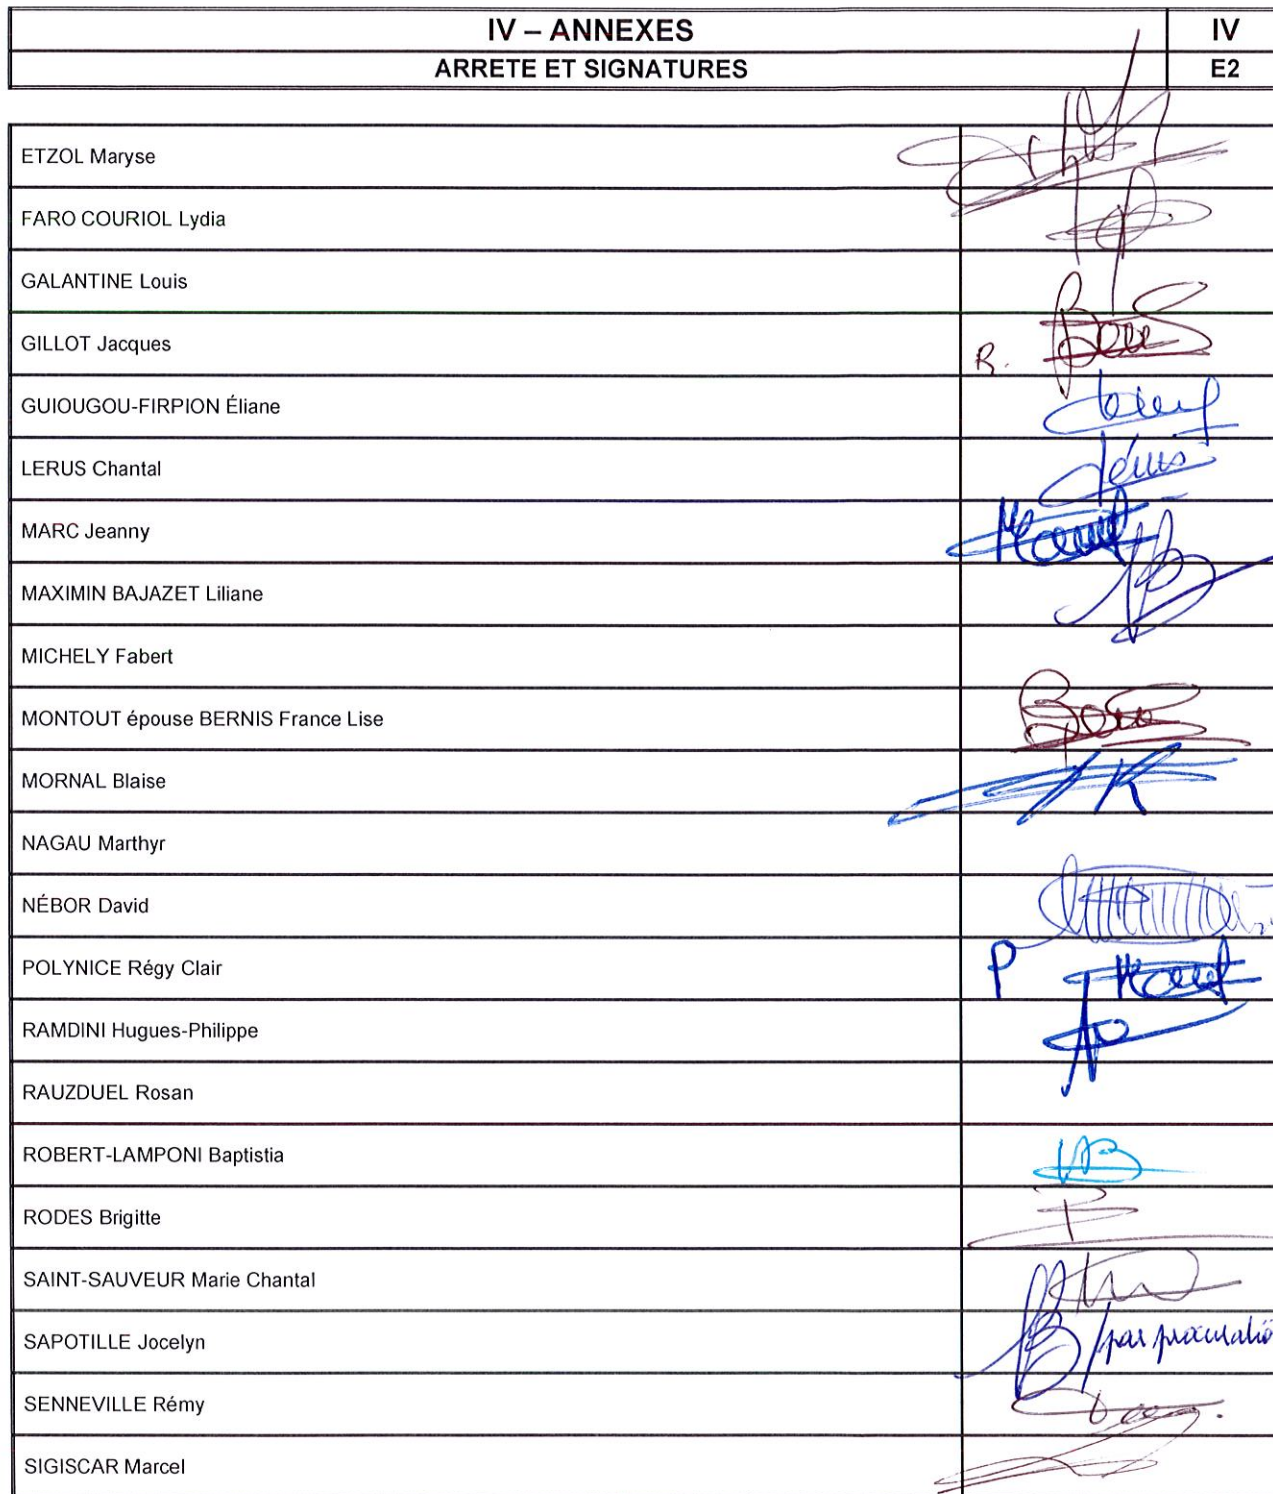 IV – ANNEXES IV
ARRETE ET SIGNATURES E2
ETZOL Maryse
FARO COURIOL Lydia
GALANTINE Louis
GILLOT Jacques
GUIOUGOU-FIRPION Éliane
LERUS Chantal
MARC Jeanny
MAXIMIN BAJAZET Liliane
MICHELY Fabert
MONTOUT épouse BERNIS France Lise
MORNAL Blaise
NAGAU Marthyr
NÉBOR David
POLYNICE Régy Clair P
RAMDINI Hugues-Philippe
RAUZDUEL Rosan
ROBERT-LAMPONI Baptistia
RODES Brigitte
SAINT-SAUVEUR Marie Chantal
SAPOTILLE Jocelyn par procuratio
SENNEVILLE Rémy
SIGISCAR Marcel